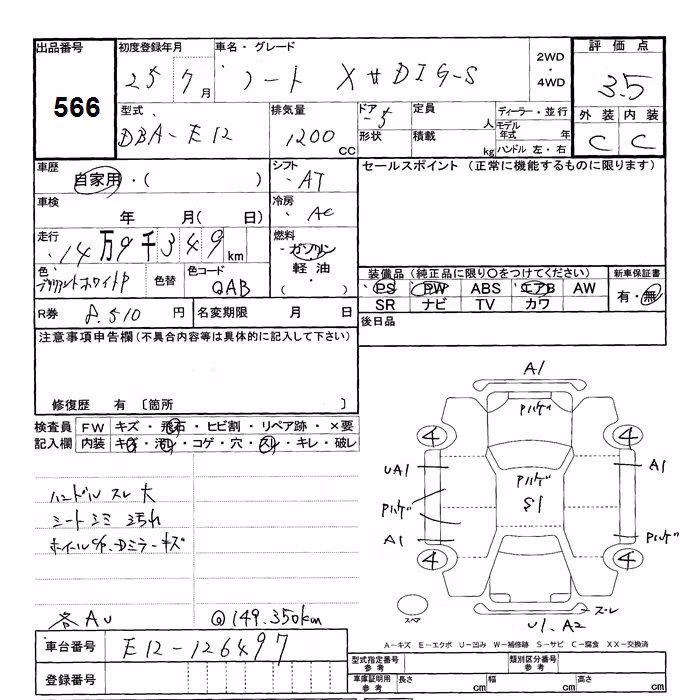 出品番号 初度登録年月 車名・グレード 2WD・4WD 評価点
566 25 7月 ノート X サ DIG-S 3.5
型式 排気量 ドア 定員 人 ディーラー・並行 外装 内装
DBA-E12 1200 CC 5 形状 積載 kg モデル年式 年 ハンドル 左・右 C C
車歴 シフト セールスポイント (正常に機能するものに限ります)
自家用・( ) AT
車検 冷房
年 月( 日) AC
走行 燃料
14万9千349km ガソリン・軽油・( )
色 色替 色コード 装備品 (純正品に限り○をつけてください) 新車保証書
ブリリアントホワイトP QAB PS PW ABS エアB AW 有・無
SR ナビ TV カワ
R券 8.510 円 名変期限 月 日 後日品
注意事項申告欄(不具合内容等は具体的に記入して下さい)
修復歴 有 〔箇所 〕
検査員 FW キズ・飛石・ヒビ割・リペア跡・×要
記入欄 内装 キズ・汚レ・コゲ・穴・スレ・キレ・破レ
ハンドル スレ 大
シート シミ 汚れ
ホイールC/P.Dミラーキズ
各AU @149.350km
A1
Pハゲ
4 4
UA1 Pハゲ A1
Pハゲ S1
A1 Pハゲ
4 4
スペア スレ
U1.A2
A-キズ E-エクボ U-凹み W-補修跡 S-サビ C-腐食 XX-交換済
車台番号 E12-126497
型式指定番号 参考 類別区分番号 参考
登録番号 車庫証明用 参考 長さ cm 幅 cm 高さ cm